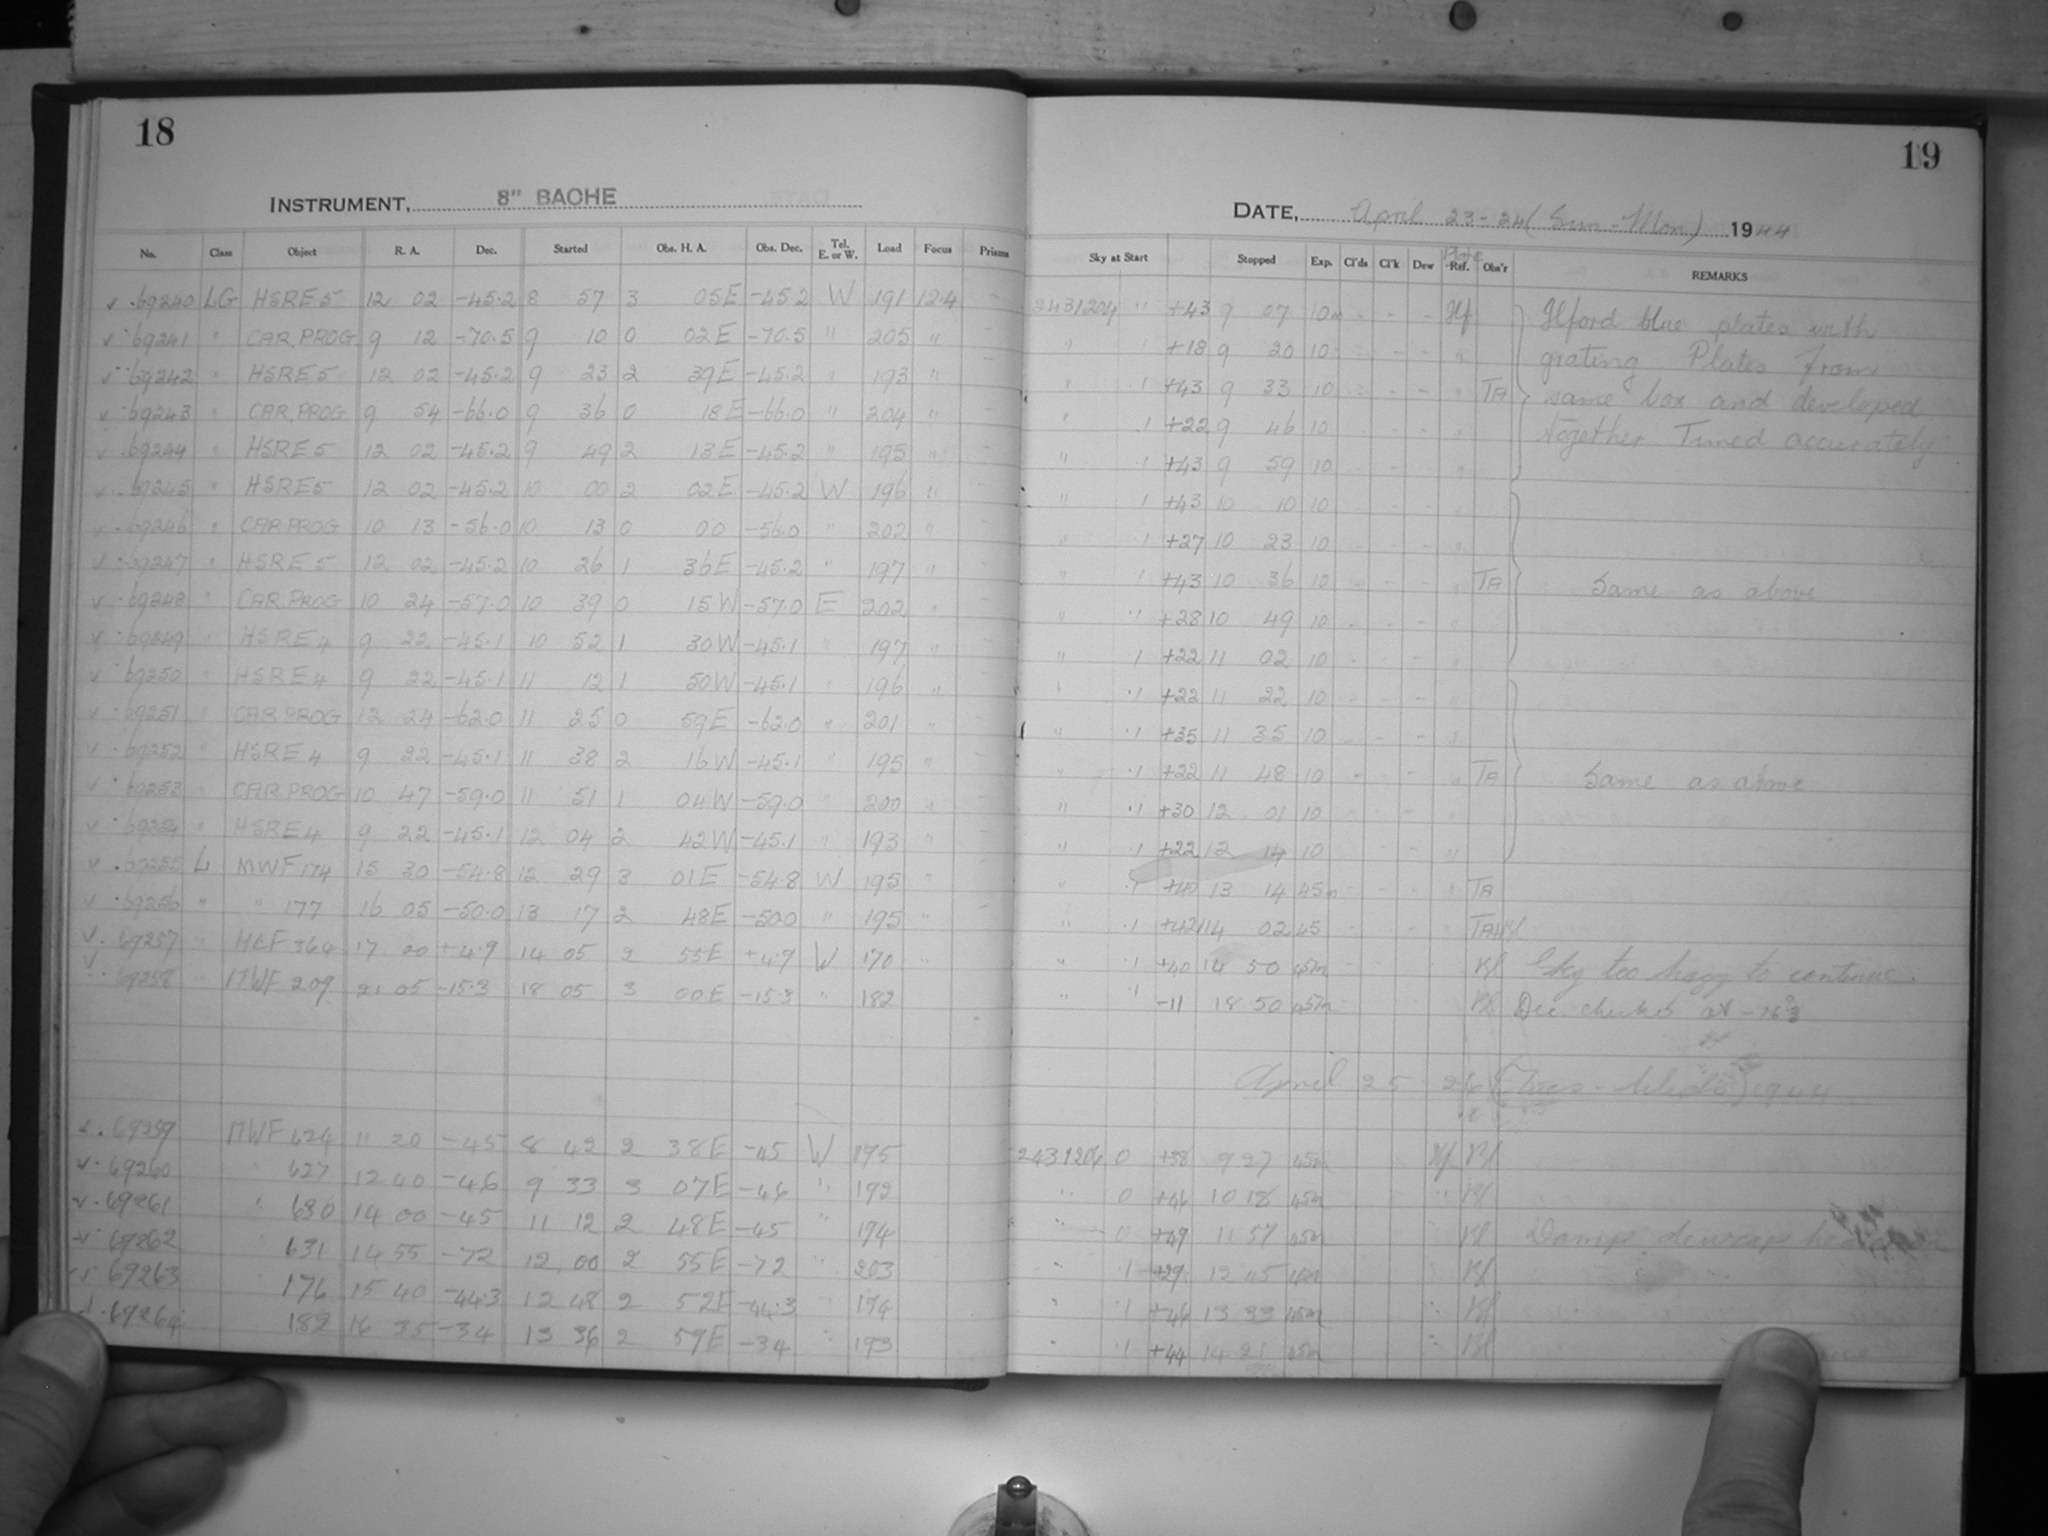 18
INSTRUMENT, 8" BACHE
No. Class Object R. A. Dec. Started Obs. H. A. Obs. Dec. Tel. E. or W. Load Focus Prisms
v .69240 LG HSRE5 12 02 -45.2 8 57 3 05E -45.2 W 191 12.4 -
v .69241 " CAR.PROG 9 12 -70.5 9 10 0 02E -70.5 " 205 " -
v .69242 " HSRE5 12 02 -45.2 9 23 2 39E -45.2 " 193 " -
v .69243 " CAR.PROG 9 54 -66.0 9 36 0 18E -66.0 " 204 " -
v .69244 " HSRE5 12 02 -45.2 9 49 2 13E -45.2 " 195 " -
v .69245 " HSRE5 12 02 -45.2 10 00 2 02E -45.2 W 196 " -
v .69246 " CAR.PROG 10 13 -56.0 10 13 0 00 -56.0 " 202 " -
v .69247 " HSRE5 12 02 -45.2 10 26 1 36E -45.2 " 197 " -
v .69248 " CAR.PROG 10 24 -57.0 10 39 0 15W -57.0 E 202 " -
v .69249 " HSRE4 9 22 -45.1 10 52 1 30W -45.1 " 197 " -
v .69250 " HSRE4 9 22 -45.1 11 12 1 50W -45.1 " 196 " -
v .69251 " CAR.PROG 12 24 -62.0 11 25 0 59E -62.0 " 201 " -
v .69252 " HSRE4 9 22 -45.1 11 38 2 16W -45.1 " 195 " -
v .69253 " CAR.PROG 10 47 -59.0 11 51 1 04W -59.0 " 200 " -
v .69254 " HSRE4 9 22 -45.1 12 04 2 42W -45.1 " 193 " -
v .69255 L MWF174 15 30 -54.8 12 29 3 01E -54.8 W 195 " -
v .69256 " " 177 16 05 -50.0 13 17 2 48E -50.0 " 195 " -
v. 69257 " HCF364 17 00 +4.9 14 05 2 55E +4.9 W 170 "
v. 69258 " MWF 209 21 05 -15.3 18 05 3 00E -15.3 " 182
v. 69259 MWF 624 11 20 -45 8 42 2 38E -45 W 195
v. 69260 " 627 12 40 -46 9 33 3 07E -46 " 192
v. 69261 " 630 14 00 -45 11 12 2 48E -45 " 194
v. 69262 631 14 55 -72 12 00 2 55E -72 " 203
v. 69263 176 15 40 -44.3 12 48 2 52E -44.3 " 194
v. 69264 182 16 35 -34 13 36 2 59E -34 " 193
19
DATE, April 23-24 (Sun-Mon) 1944
Sky at Start Stopped Exp. Cl'ds Cl'k Dew Plate Ref. Obs'r REMARKS
2431204 " +43 9 07 10m - - - Ilf Ilford blue plates with
" +18 9 20 10 - - - " grating Plates from
" .1 +43 9 33 10 - - - " TA same box and developed
" .1 +22 9 46 10 - - - " together Timed accurately
" .1 +43 9 59 10 - - - "
" .1 +43 10 10 10 - - -
" .1 +27 10 23 10 - - - "
" .1 +43 10 36 10 - - - " TA Same as above
" .1 +28 10 49 10 - - - "
" .1 +22 11 02 10 - - - "
" .1 +22 11 22 10 - - - "
" .1 +35 11 35 10 - - - "
" .1 +22 11 48 10 - - - " TA Same as above
" .1 +30 12 01 10 - - - "
" .1 +22 12 14 10 - - - "
" .1 +40 13 14 45m - - - " TA
" .1 +42 14 02 45 - - - "
" .1 +40 14 50 45m Sky too hazy to continue.
" .1 -11 18 50 45m Dec. checks at -16°3
April 25 26 (Tues-Weds) 1944
2431206 0 +38 9 27 45m
" 0 +46 10 18 45m "
" 0 +49 11 57 45m Damp, dewcap
" .1 +29 12 45 45m
" .1 +46 13 33 45m "
" .1 +44 14 21 45m "